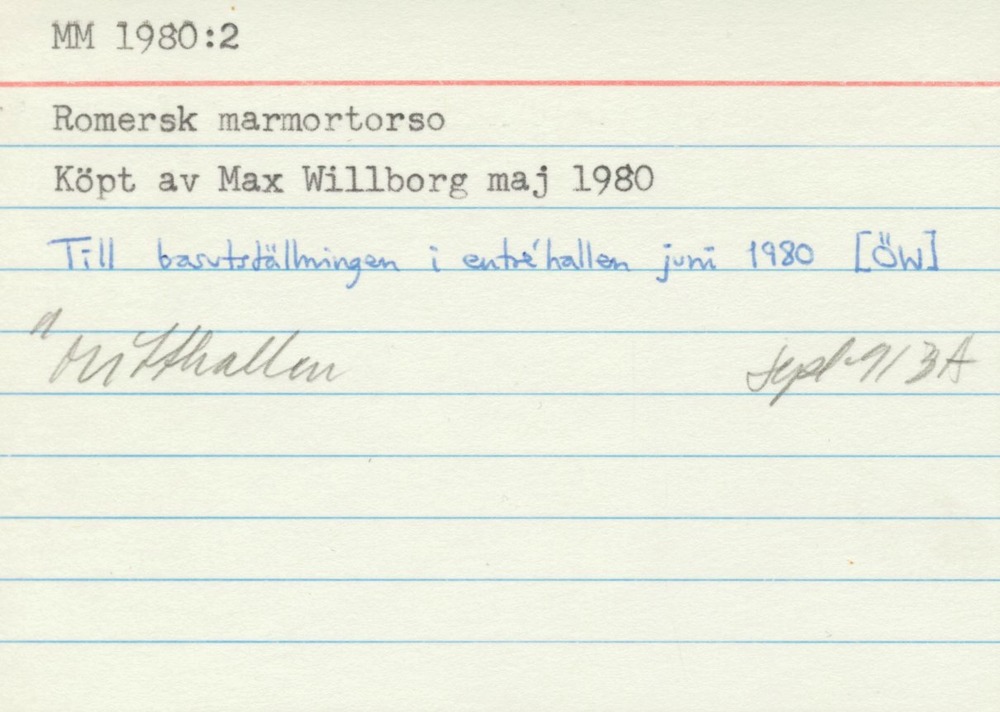 MM 1980:2
Romersk marmortorso
Köpt av Max Willborg maj 1980
Till basutställningen i entréhallen juni 1980 [ÖW]
" Mitthallen Sept-91